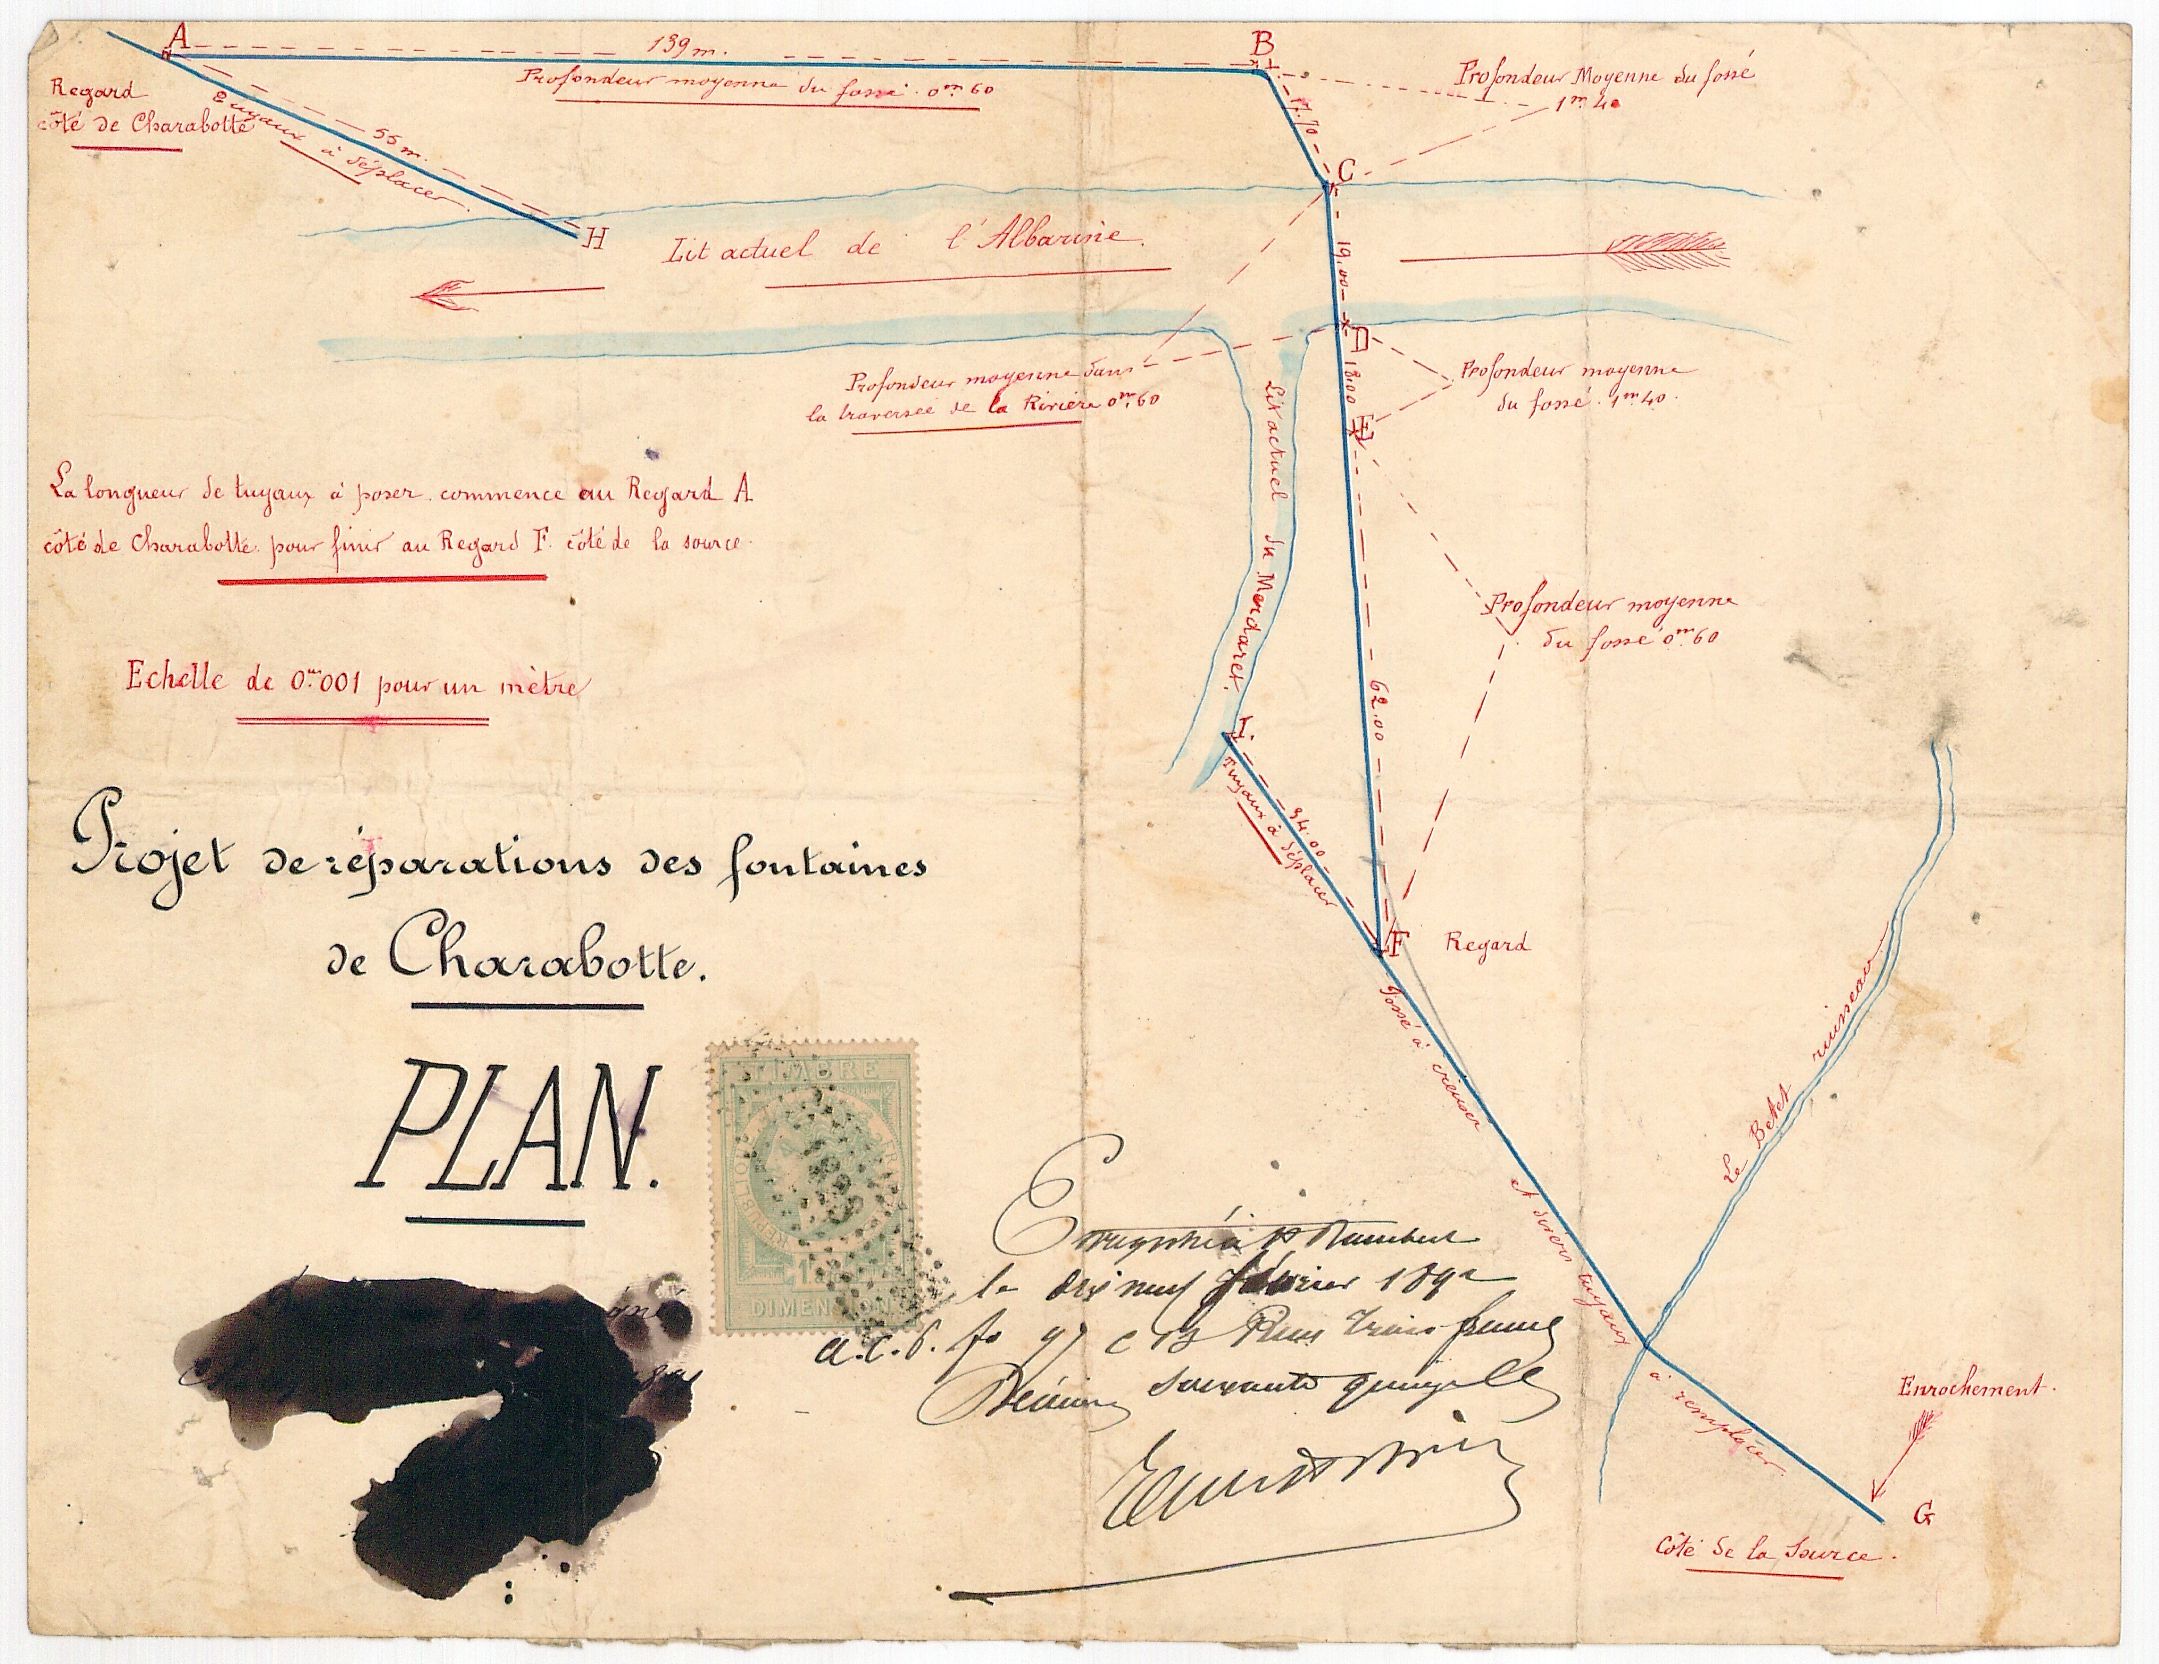 A
139 m.
B
Profondeur moyenne du fossé. 0m,60
Profondeur Moyenne du fossé
1m 40
Regard
côté de Charabotte
55 m.
Tuyaux à déplacer.
17.70
C
H
Lit actuel de l'Albarine.
19.00
D
Profondeur moyenne dans
la traversée de la Rivière 0m,60
Profondeur moyenne
du fossé. 1m 40.
18.00
E
Lit actuel du Merdaret.
La longueur de tuyaux à poser. commence au Regard A
côté de Charabotte. pour finir au Regard F. côté de la source.
Profondeur moyenne
du fossé 0m 60
Echelle de 0m.001 pour un mètre
62.00
I.
34.00
Tuyaux à déplacer
Projet de réparations des fontaines
de Charabotte.
F
Regard
PLAN.
Fossé à creuser et divers tuyaux à remplacer.
Le Betet ruisseau
TIMBRE
DIMENSION
Enregistré à St Rambert
le dix neuf février 1892
fo 97 c 13 Reçu trois francs
Décimes soixante quinze c
Enrochement.
G
Côté de la Source.